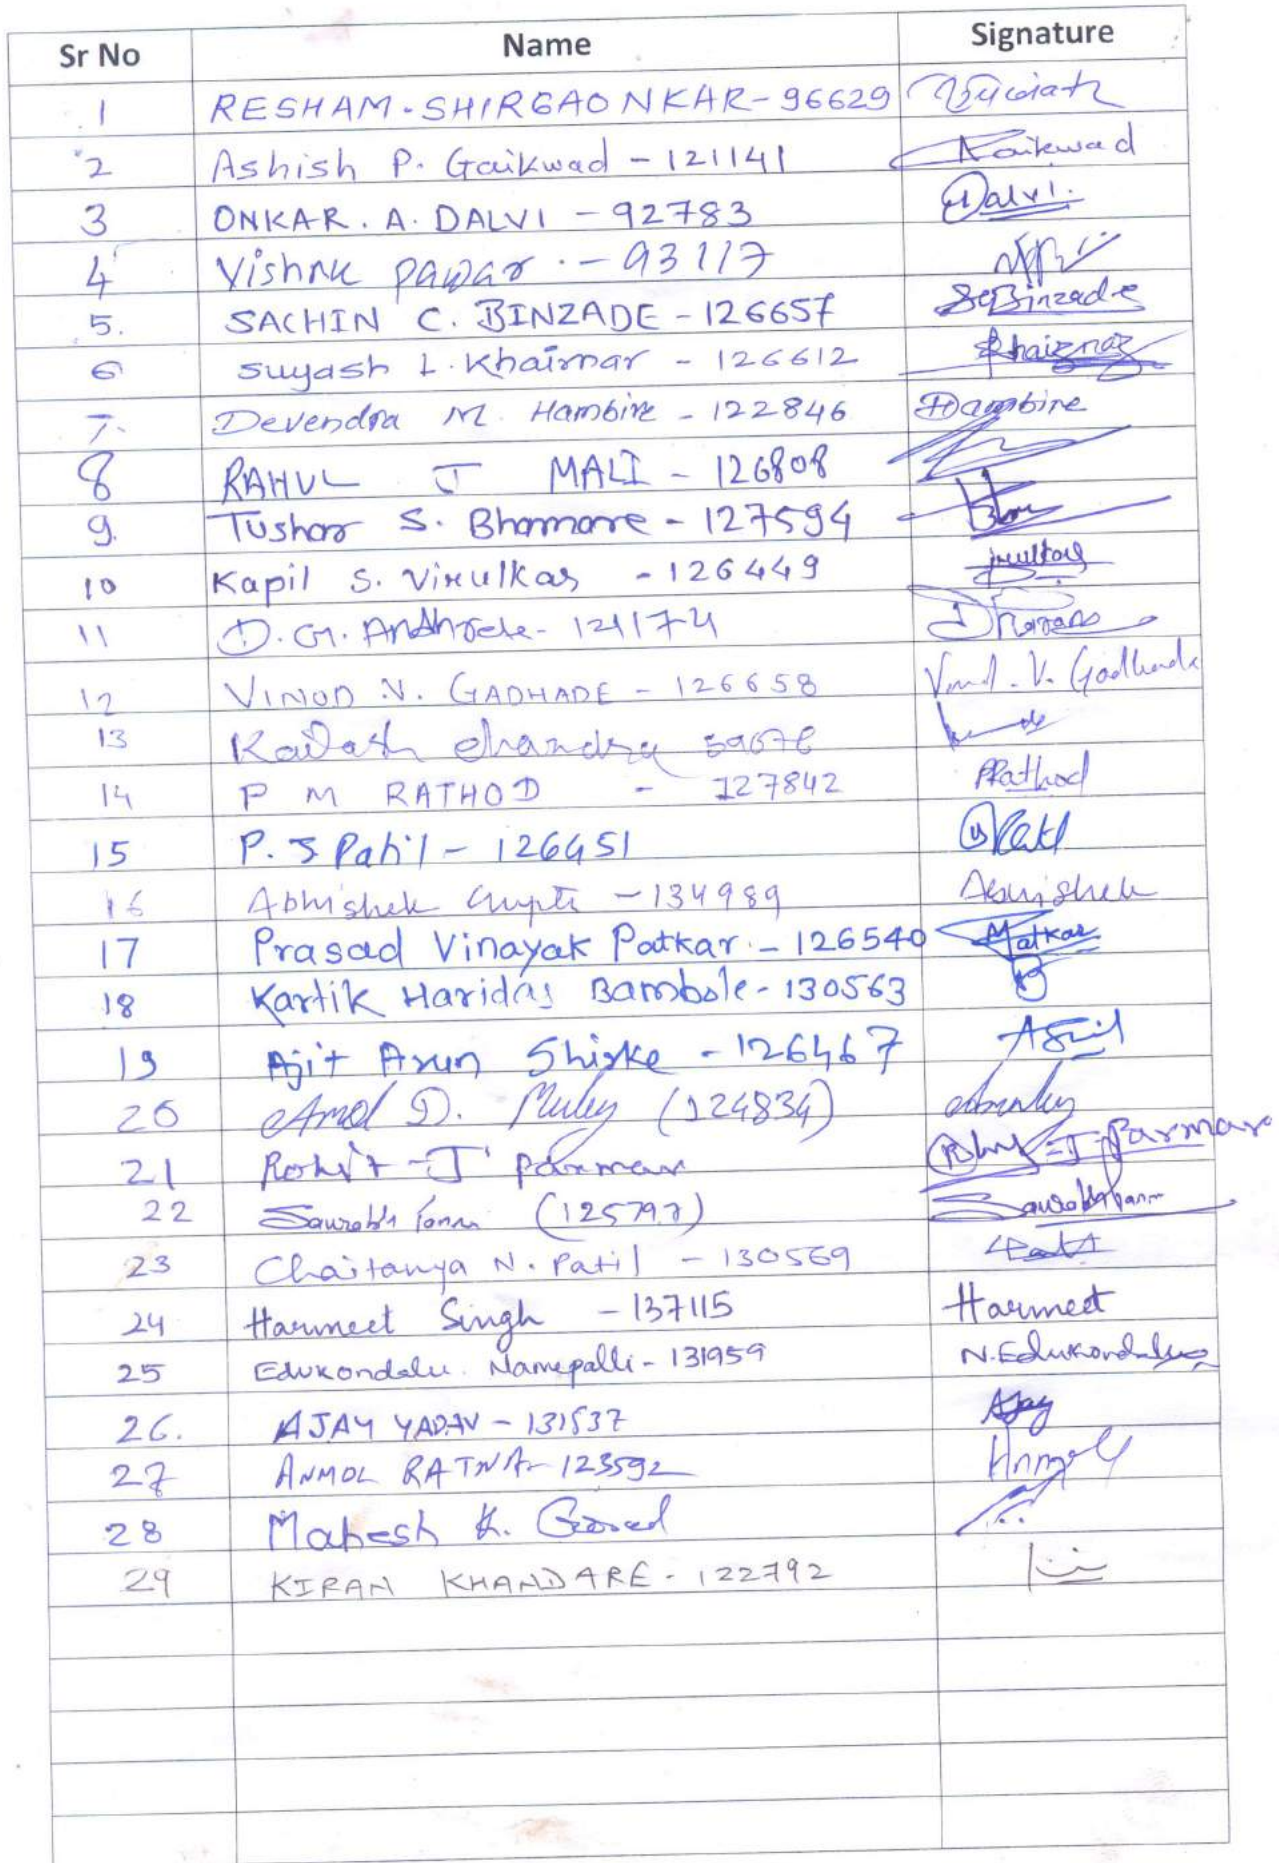 Sr No Name Signature
1 RESHAM-SHIRGAONKAR-96629
2 Ashish P. Gaikwad - 121141 Gaikwad
3 ONKAR. A. DALVI - 92783 Dalvi.
4 Vishnu pawar - 93117
5. SACHIN C. BINZADE - 126657 SCBinzade
6 Suyash L. Khairnar - 126612 Khairnar
7. Devendra M. Hambire - 122846 Hambire
8 RAHUL J MALI - 126808
9. Tushar S. Bhamare - 127594
10 Kapil S. Virulkar - 126449
11 D. G. Andhrele - 121174
12 VINOD V. GADHADE - 126658 Vinod. V. Gadhade
13 Kailash chandra 59678
14 P M RATHOD - 127842 PRathod
15 P. S Patil - 126451 Patil
16 Abhishek Gupta - 134989 Abhishek
17 Prasad Vinayak Patkar. - 126540 Patkar
18 Kartik Haridas Bambole - 130563
19 Ajit Arun Shirke - 126467
20 Amol D. Muley (124834) Amuley
21 Rohit - J parmar J. Parmar
22 Saurabh (125797) Saurabh
23 Chaitanya N. Patil - 130569
24 Harmeet Singh - 137115 Harmeet
25 Edukondalu. Namepalli - 131959 N.Edukondalu
26. AJAY YADAV - 131537 Ajay
27 ANMOL RATNA - 123592 Anmol
28 Mahesh K.
29 KIRAN KHANDARE - 122792